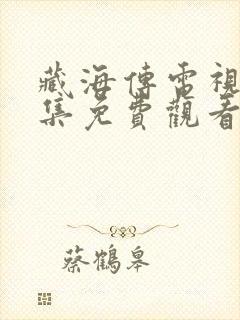 藏海傳電視
集免費觀看
蔡鶴皋